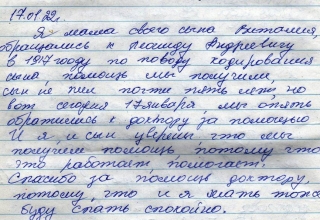 17.01.22г.
Я мама свого сына Виталия,
обращались к Леониду Андреевичу
в 1917 году по поводу кодирования
сына, помощь мы получили,
сын не пил почти пять лет, но
вот сегодня 17 января, мы опять
обратились к доктору за помощью
И я и сын уверены что мы
получим помощь потому что
это работает, помогает.
Спасибо за помощь доктору,
потому, что и я мать тоже
буду спать спокойно.